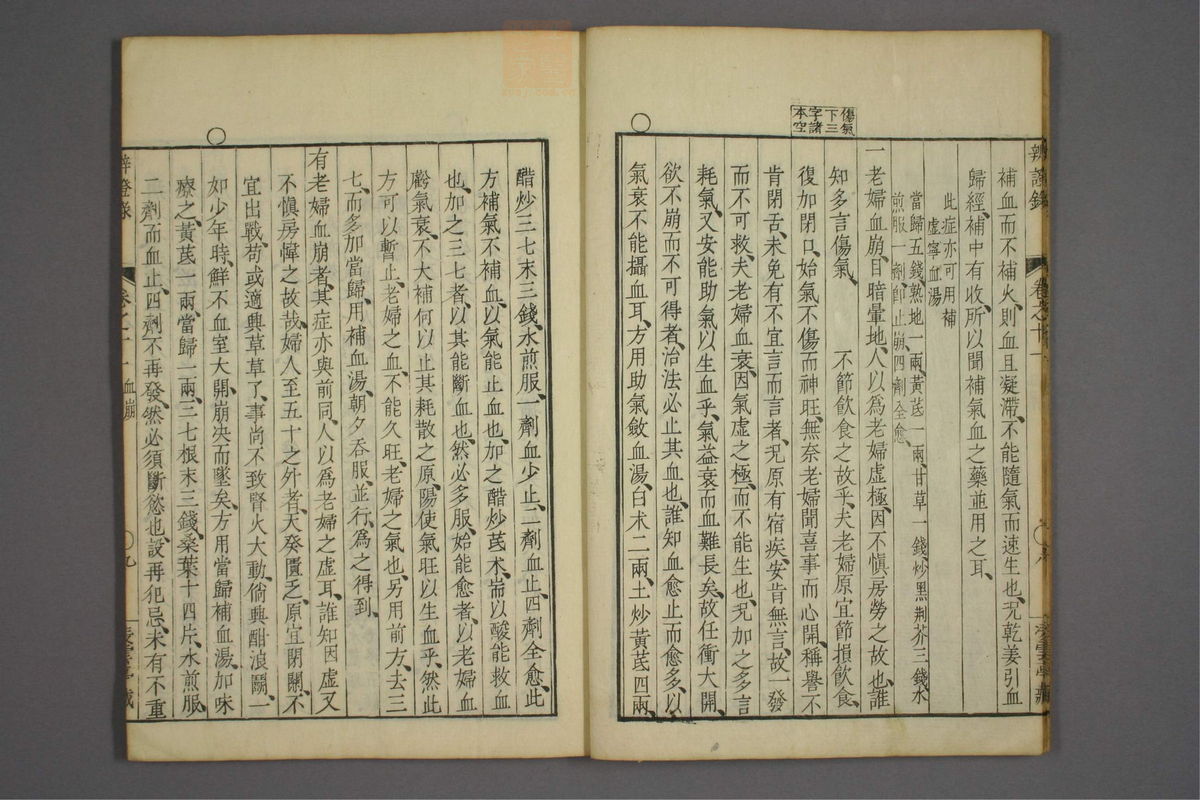 傷氣
下三
字諸
本空
補血而不補火、則血且凝滯、不能隨氣而速生也、况乾姜引血
歸經、補中有收、所以聞補氣血之藥並用之耳、
此症亦可用補
虛寧血湯
當歸五錢熟地一兩、黃芪一兩、甘草一錢炒黑荆芥三錢、水
煎服一劑、卽止崩四劑全愈、
一老婦血崩、目暗暈地、人以爲老婦虛極、因不愼房勞之故也、誰
知多言傷氣、不節飮食之故乎、夫老婦原宜節損飮食、
復加閉口、始氣不傷而神旺、無奈老婦聞喜事而心開、稱譽不
肯閉舌、未免有不宜言而言者、况原有宿疾、安肯無言、故一發
而不可救、夫老婦血衰、因氣虛之極、而不能生也、况加之多言
耗氣、又安能助氣以生血乎、氣益衰而血難長矣、故任衝大開、
欲不崩而不可得者、治法必止其血也、誰知血愈止而愈多、以
氣衰不能攝血耳、方用助氣斂血湯、白术二兩、土炒黃芪四兩、
醋炒三七末三錢、水煎服、一劑血少止、二劑血止、四劑全愈、此
方補氣不補血、以氣能止血也、加之醋炒芪术、耑以酸能救血
也、加之三七者、以其能斷血也、然必多服、始能愈者、以老婦血
虧氣衰、不大補何以止其耗散之原、陽使氣旺以生血乎、然此
方可以暫止、老婦之血、不能久旺、老婦之氣也、另用前方、去三
七、而多加當歸、用補血湯、朝夕吞服、並行、爲之得到、
有老婦血崩者、其症亦與前同、人以爲老婦之虛耳、誰知因虛又
不愼房幃之故哉、婦人至五十之外者、天癸匱乏、原宜閉關、不
宜出戰、苟或適興草草了、事尙不致腎火大動、倘興酣浪鬭、一
如少年時、鮮不血室大開、崩决而墜矣、方用當歸補血湯、加味
療之、黃芪一兩、當歸一兩、三七根末三錢、桑葉十四片、水煎服、
二劑而血止、四劑不再發、然必須斷慾也、設再犯忌、未有不重
辨證錄
血崩